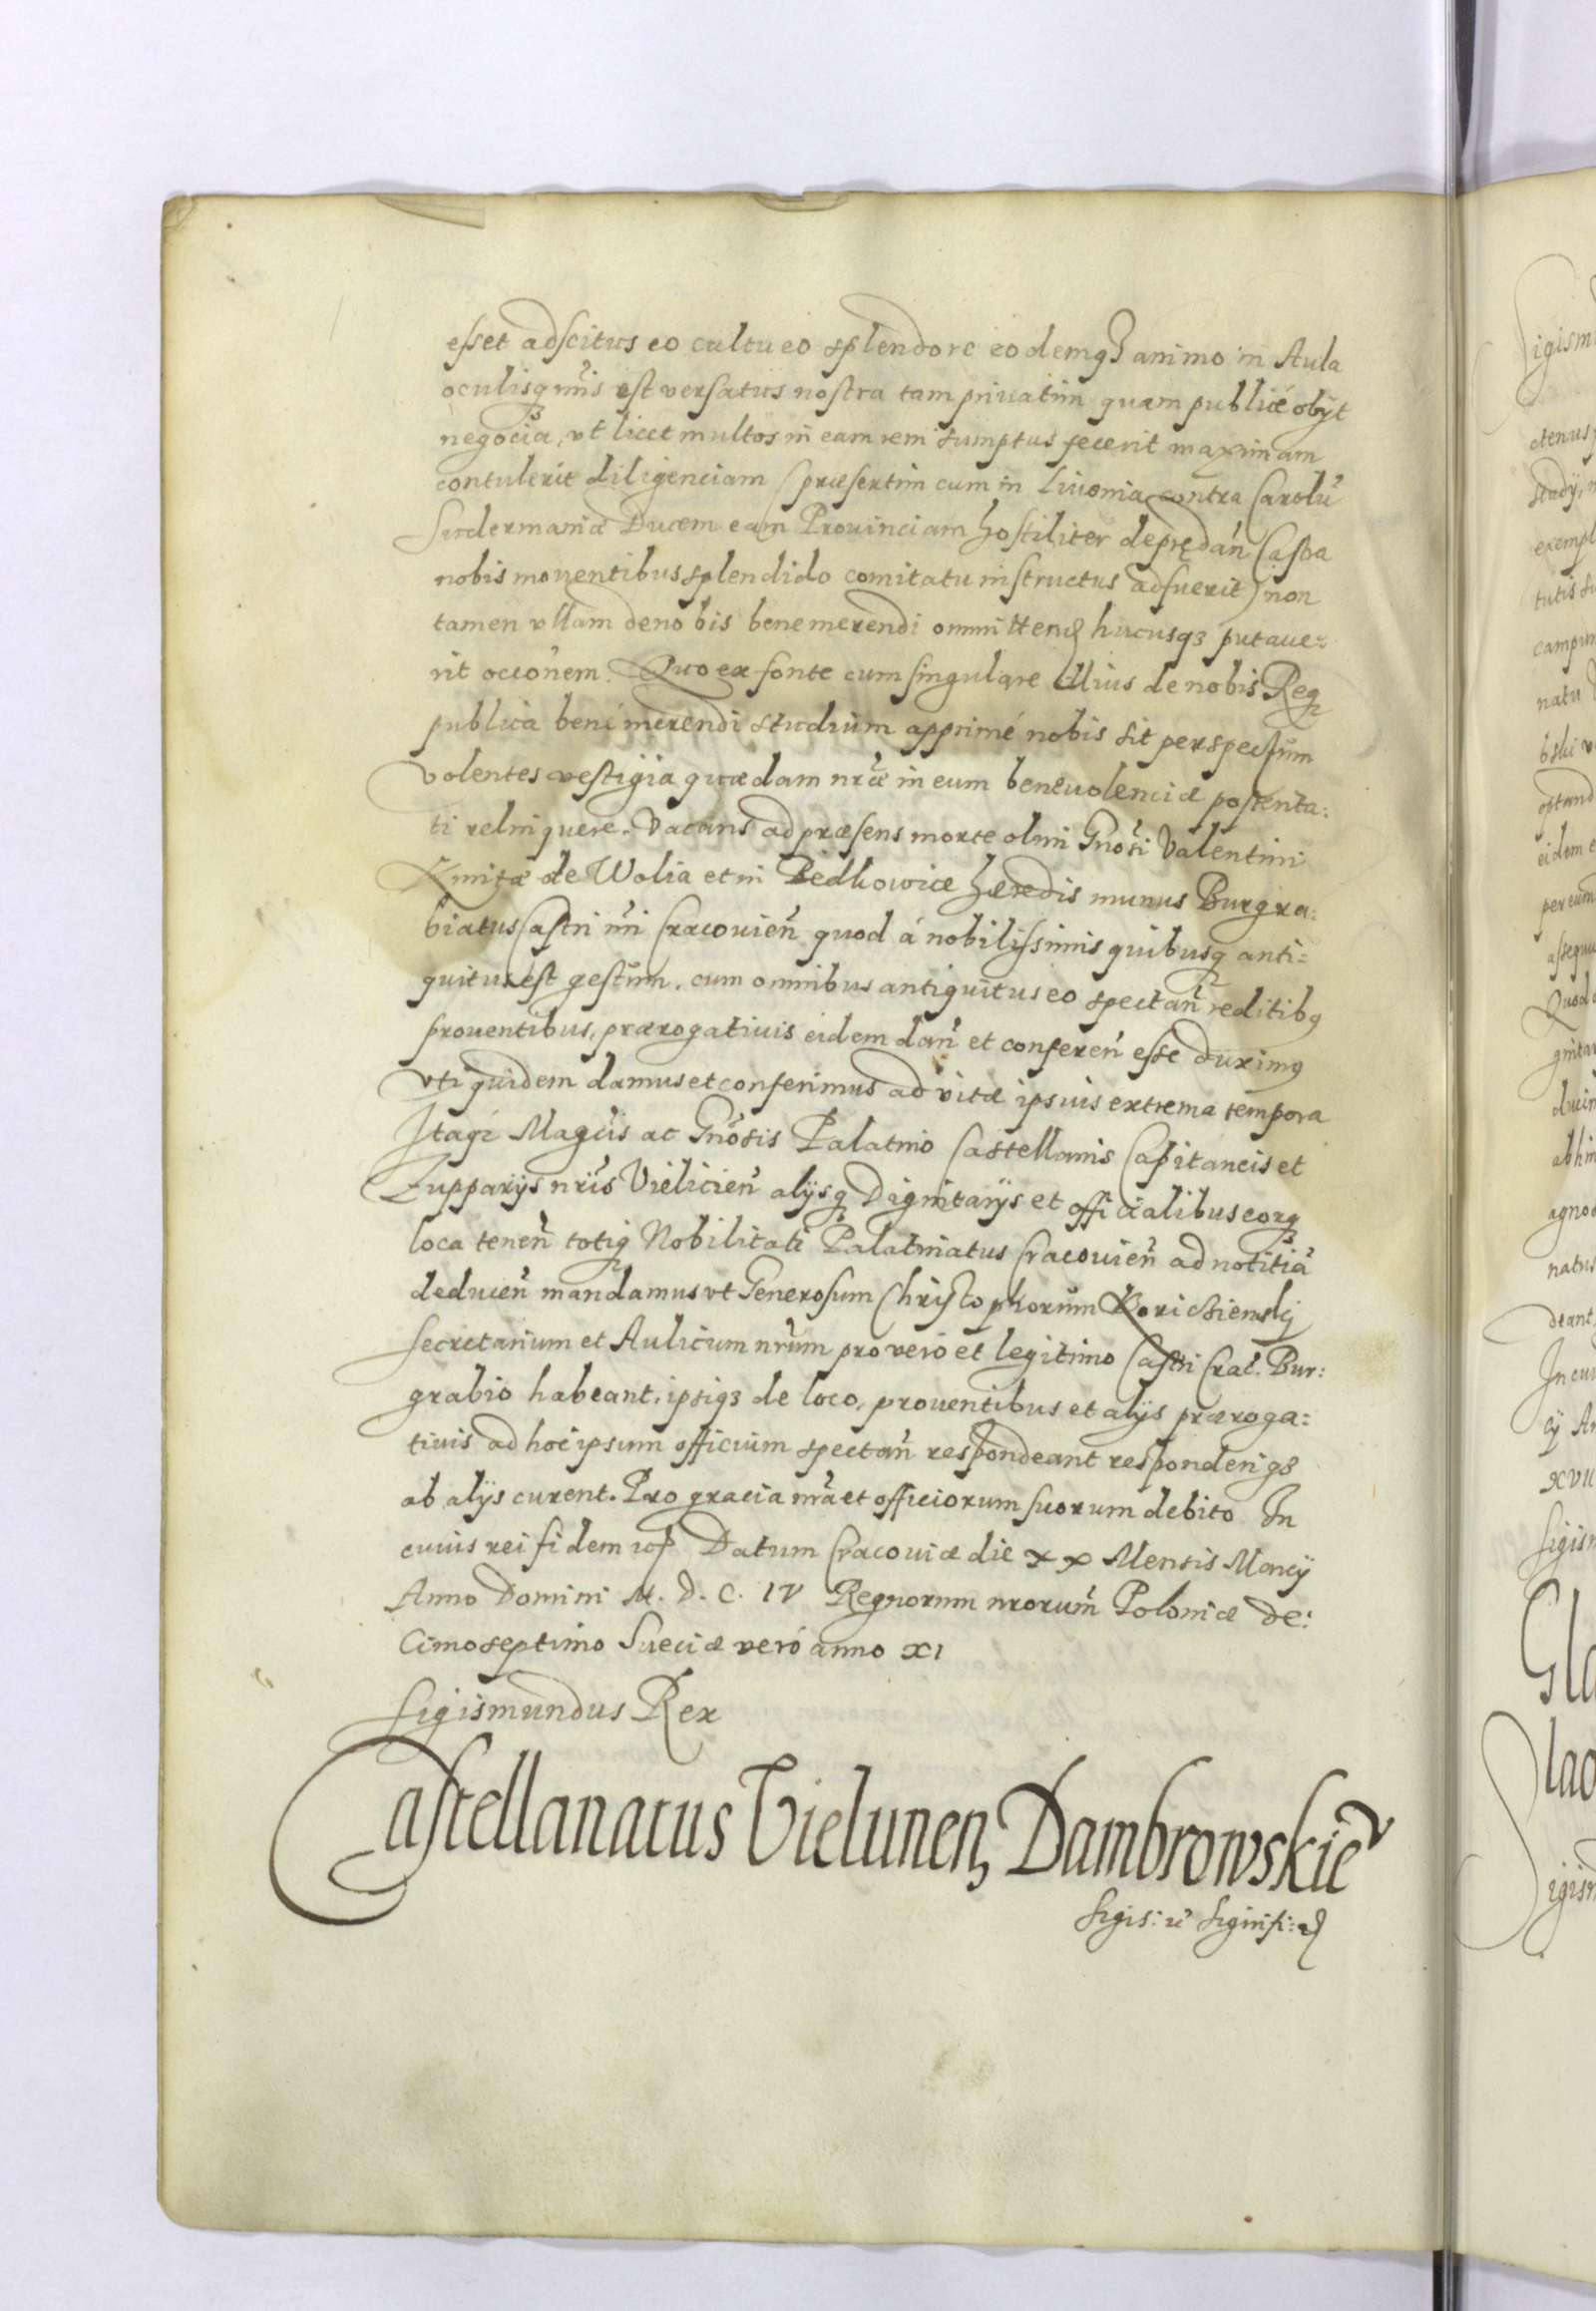 esset adscitus eo cultu eo splendore eodemq₃ animo in Aula
oculisq₃ nr̃is est versatus nostra tam priuatim quam publicé obijt
negocia, vt licet multos in eam rem sumptus fecerit maximam
contulerit diligenciam (præsertim cum in Liuonia contra Carolũ
Sudermaniæ Ducem eam Prouinciam hostiliter deprędañ Castra
nobis mouentibus splendido comitatu instructus adfuerit) non
tamen vllam de nobis benemerendi ommittend hucusq₃ putaue=
rit occõnem. Quo ex fonte cum singulare illius de nobis Req₃
publica bené merendi studium apprimé nobis sit perspectum
volentes vestigia quædam nrãe in eum beneuolenciæ posterita:
ti relinquere. Vacans ad præsens morte olim Gnõsi Valentini
de Wolia et in Biedkowice hæredis munus Burgra:
biatus Castri nr̃i Cracouień quod á nobilissimis quibusq₃ anti=
quitus est gestum, cum omnibus antiquitus eo spectań reditibq
prouentibus, prærogatiuis eidem dań et confereń esse duximq
vti quidem damus et conferimus ad vitæ ipsius extrema tempora
Itaq₃ Magcis ac Gnõsis Palatino Castellanis Capitaneis et
Zupparijs nris Vielicień alijsq₃ Dignitarijs et officialibus eorq₃
loca teneń totiq Nobilitati Palatinatus Cracouień ad notitiã
deduceń mandamus vt Generosum Christophorum
secretarium et Aulicum nrum pro vero et legitimo Castri Crac. Bur:
grabio habeant, ipsiq₃ de loco, prouentibus et alijs præroga:
tiuis ad hoc ipsum officium spectań respondeant responderiq₃
ab alijs curent. Pro gracia nrã et officiorum suorum debito In
cuius rei fidem Datum Cracouiæ die xx Mensis Marcij
Anno Domini M. D. C. IV Regnorum nrorum Poloniæ de:
cimoseptimo Sueciæ veró anno XI
Sigismundus Rex
Castellanatus Vielunen, Dambrowskie
Sigis: Signifi: